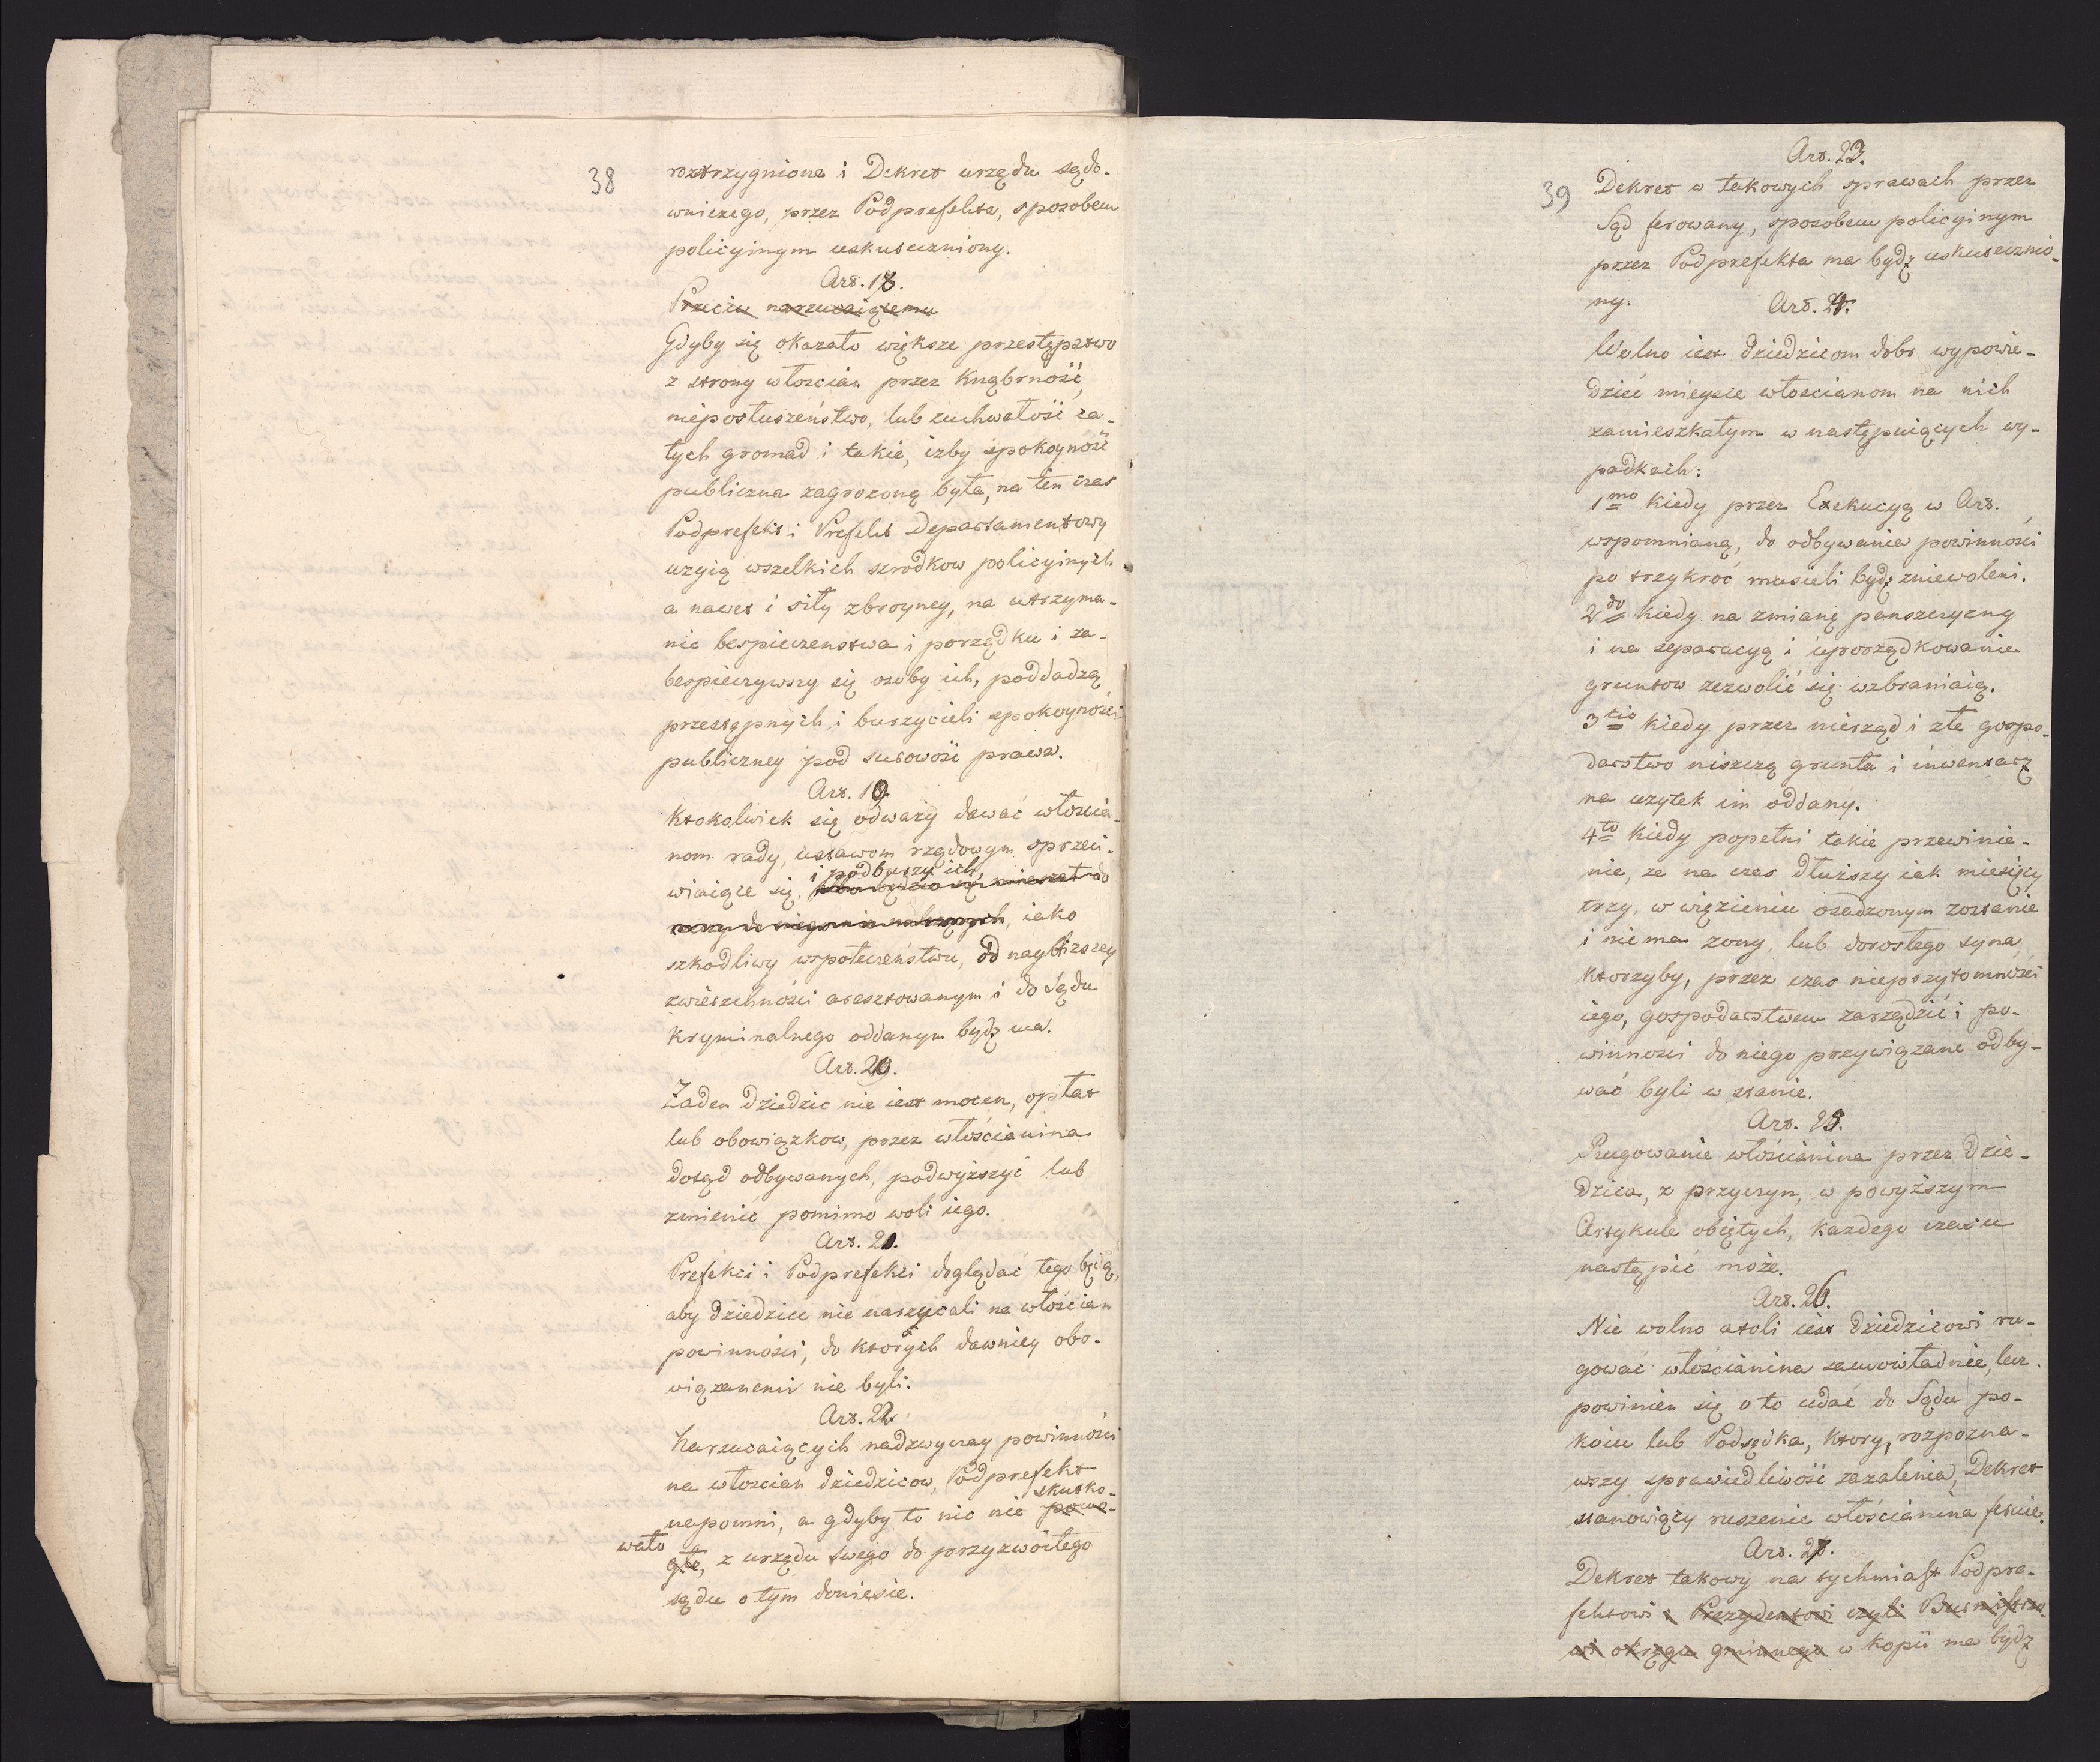 38
roztrzygnione i Dekret urzędu sądo-
wniczego, przez Podprefekta, sposobem
policyinym uskuteczniony.
Art. 18.
Przeciw narzucaiącemu
Gdyby się okazało większe przestępstwo
z strony włoscian przez Knąbrność,
nieposłuszeństwo, lub zuchwałość ca-
łych gromad i takie, iżby spokoyność
publiczna zagrożoną była, na ten czas
Podprefekt i Prefekt Departamentowy
uzyią wszelkich szrodkow policyinych
a nawet i siły zbroyney, na utrzyma-
nie bespieczenstwa i porządku i za-
bespieczywszy się osoby ich, poddadzą
przestępnych i burzycieli spokoyności
publiczney pod surowość prawa.
Art. 19.
Ktokolwiek się odważy dawać włoscia-
nom rady, ustawom rządowym sprzeci-
i podburzy ich,
wiaiące się, albo będzie się mieszał do
rzeczy do niego nie należących, iako
szkodliwy wspołeczeństwu, od naybliższey
zwierzchności aresztowanym i do Sądu
Kryminalnego oddanym bydź ma.
Art. 20.
Żaden dziedzic nie iest mocen, opłat
lub obowiązkow, przez włościanina
dotąd odbywanych, podwyższyć lub
zmienić pomimo woli iego.
Art. 21.
Prefekci i Podprefekci doglądać tego będą,
aby dziedzice nie narzucali na włościan
powinności, do ktorych dawniey obo-
wiązanemi nie byli.
Art. 22.
Narzucaiących nadzwyczay powinności
na włoscian dziedzicow, Podprefekt
skutko-
napomni, a gdyby to nic nie pomo-
wało
gło, z urzędu swego do przyzwoitego
sądu o tym doniesie.
39
Art. 23.
Dekret w takowych sprawach przez
Sąd ferowany, sposobem policyinym
przez Podprefekta ma bydź uskutecznio-
ny.
Art. 24.
Wolno iest dziedzicom dobr wypowie-
dzieć mieysce włoscianom na nich
zamieszkałym w następuiących wy-
padkach:
1mo Kiedy przez Exekucyą w Art. ,
wspomnianą, do odbywania powinności
po trzykroć musieli bydź zniewoleni.
2do Kiedy na zmianę panszczyzny
i na separacyą i uporządkowanie
gruntow zezwolić się wzbraniaią.
3tio Kiedy przez nierząd i złe gospo-
darstwo niszczą grunta i inwentarz
na użytek im oddany.
4to Kiedy popełni takie przewinie-
nie, że na czas dłuższy iak miesięcy
trzy, w więzieniu osadzonym zostanie
i niema zony, lub dorosłego syna,
ktorzyby, przez czas nieprzytomności
iego, gospodarstwem zarządzić i po-
winności do niego przywiązane odby-
wać byli w stanie.
Art. 25.
Rugowanie włościanina przez dzie-
dzica, z przyczyn, w powyższym
Artykule obiętych, każdego czasu
nastąpić może.
Art. 26.
Nie wolno atoli iest dziedzicowi ru-
gować włościanina samowładnie, lecz
powinien się o to udać do Sądu po-
koiu lub Podsędka, ktory, rozpozna-
wszy sprawiedliwość zażalenia, Dekret
stanowiący ruszenie włościanina feruie.
Art. 27.
Dekret takowy na tychmiast Podpre-
fektowi i Prezydentowi czyli Burmistrzo-
wi okręgu gminnego w kopii ma bydź